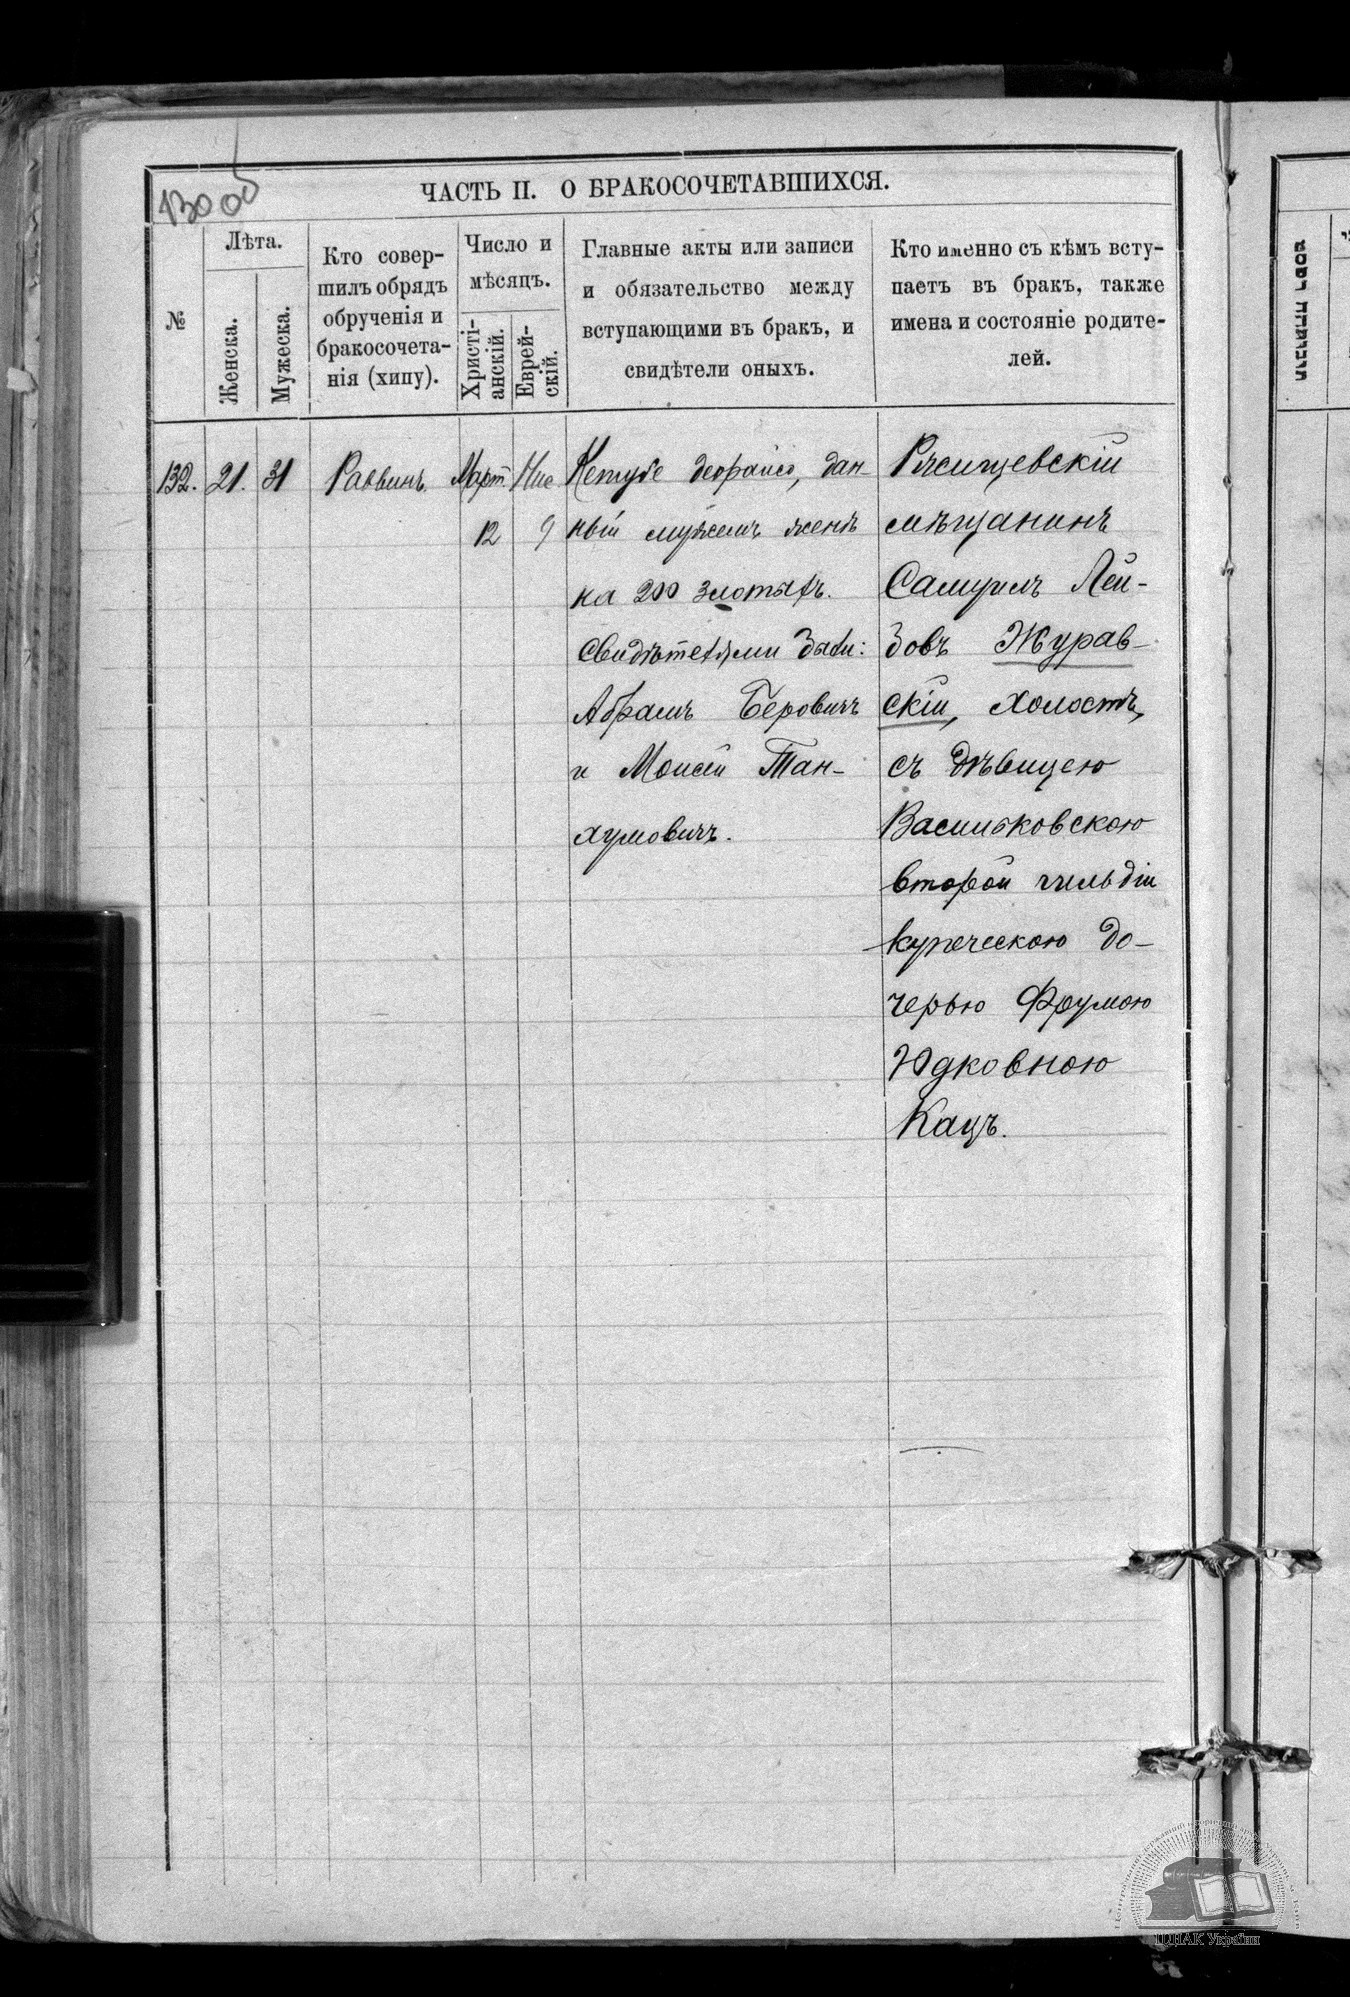 130 об
ЧАСТЬ II. О БРАКОСОЧЕТАВШИХСЯ.
№
Лѣта.
Женска.
Мужеска.
Кто совер-
шилъ обрядъ
обрученія и
бракосочета-
нія (хипу).
Число и
мѣсяцъ.
Христі-
анскій.
Еврей-
скій.
Главные акты или записи
и обязательство между
вступающими въ бракъ, и
свидѣтели оныхъ.
Кто именно съ кѣмъ всту-
паетъ въ бракъ, также
имена и состояніе родите-
лей.
132.
21.
31
Раввинъ.
Март
12
Нис
9
Кетубе деорайсо, дан-
ный мужемъ женѣ
на 200 злотыхъ.
Свидѣтелями были:
Абрамъ Беровичъ
и Моисей Тан-
хумовичъ.
Ржищевскій
мѣщанинъ
Самуилъ Лей-
зовъ Журав-
скій, холостъ,
съ дѣвицею
Васильковскою
второй гильдіи
купеческою до-
черью Фрумою
Юдковною
Кацъ.
ЦДІАК України